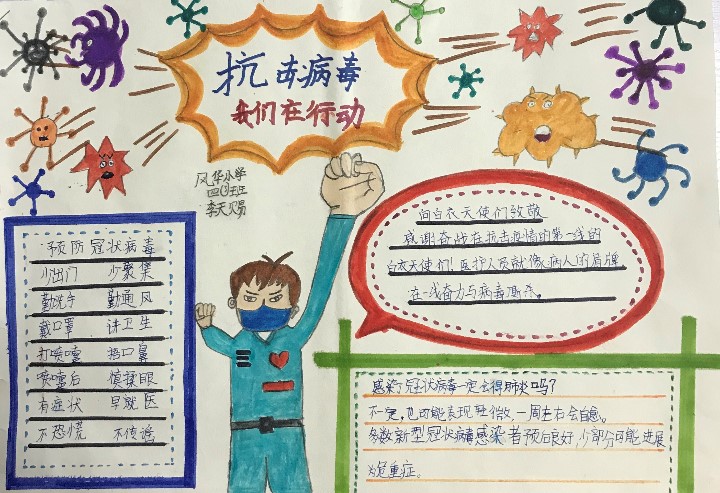 抗击病毒
我们在行动
风华小学
四(1)班
李天赐
预防冠状病毒
少出门 少聚集
勤洗手 勤通风
戴口罩 讲卫生
打喷嚏 捂口鼻
喷嚏后 慎揉眼
有症状 早就医
不恐慌 不传谣
向白衣天使们致敬
感谢奋战在抗击疫情的第一线的
白衣天使们！医护人员就像病人的盾牌
在一线奋力与病毒厮杀。
感染了冠状病毒一定会得肺炎吗？
不一定，也可能表现轻微，一周左右会自愈。
多数新型冠状病毒感染者预后良好，少部分可能进展
为危重症。